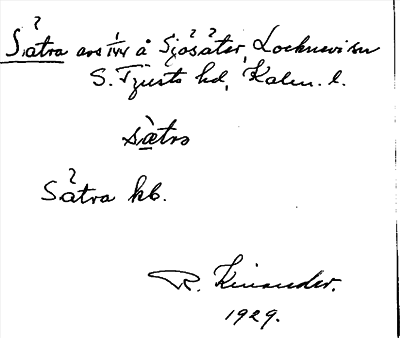 Sätra avs 1/44 å Sjösäter, Locknevi sn
S. Tjusts hd, Kalm. l.
sætra
Sätra kb.
R. Kinander.
1929.